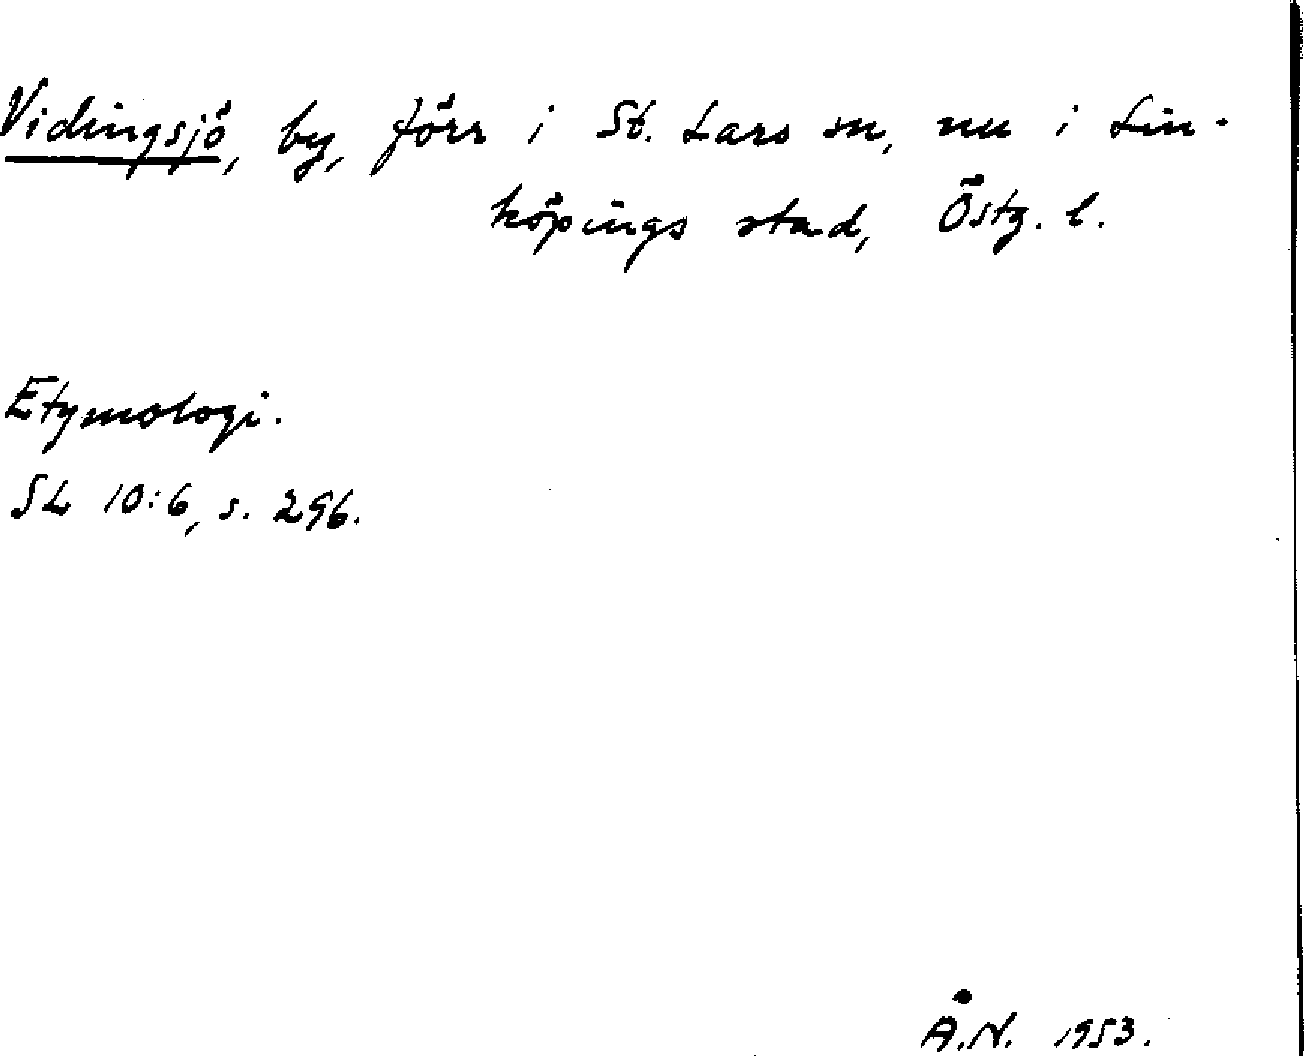 Vidingsjö, by, förr i St. Lars sn, nu i Lin-
köpings stad, Östg. l.
Etymologi.
SL 10:6, s. 296.
Å.N. 1953.